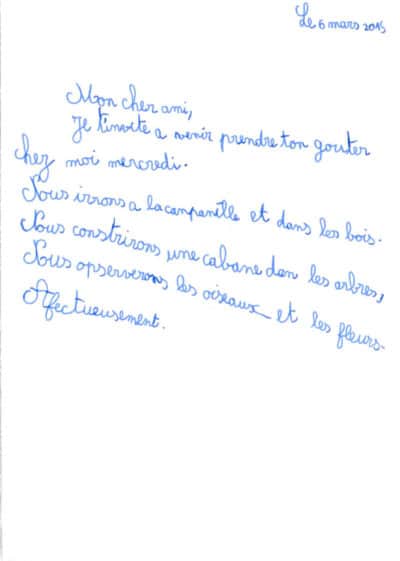 Le 6 mars 2015
Mon cher ami,
Je t'invite a venir prendre ton gouter
chez moi mercredi.
Nous irrons a lacampanille et dans les bois.
Nous constrirons une cabane dan les arbres,
Nous opserverons les oiseaux et les fleurs.
Afectueusement.